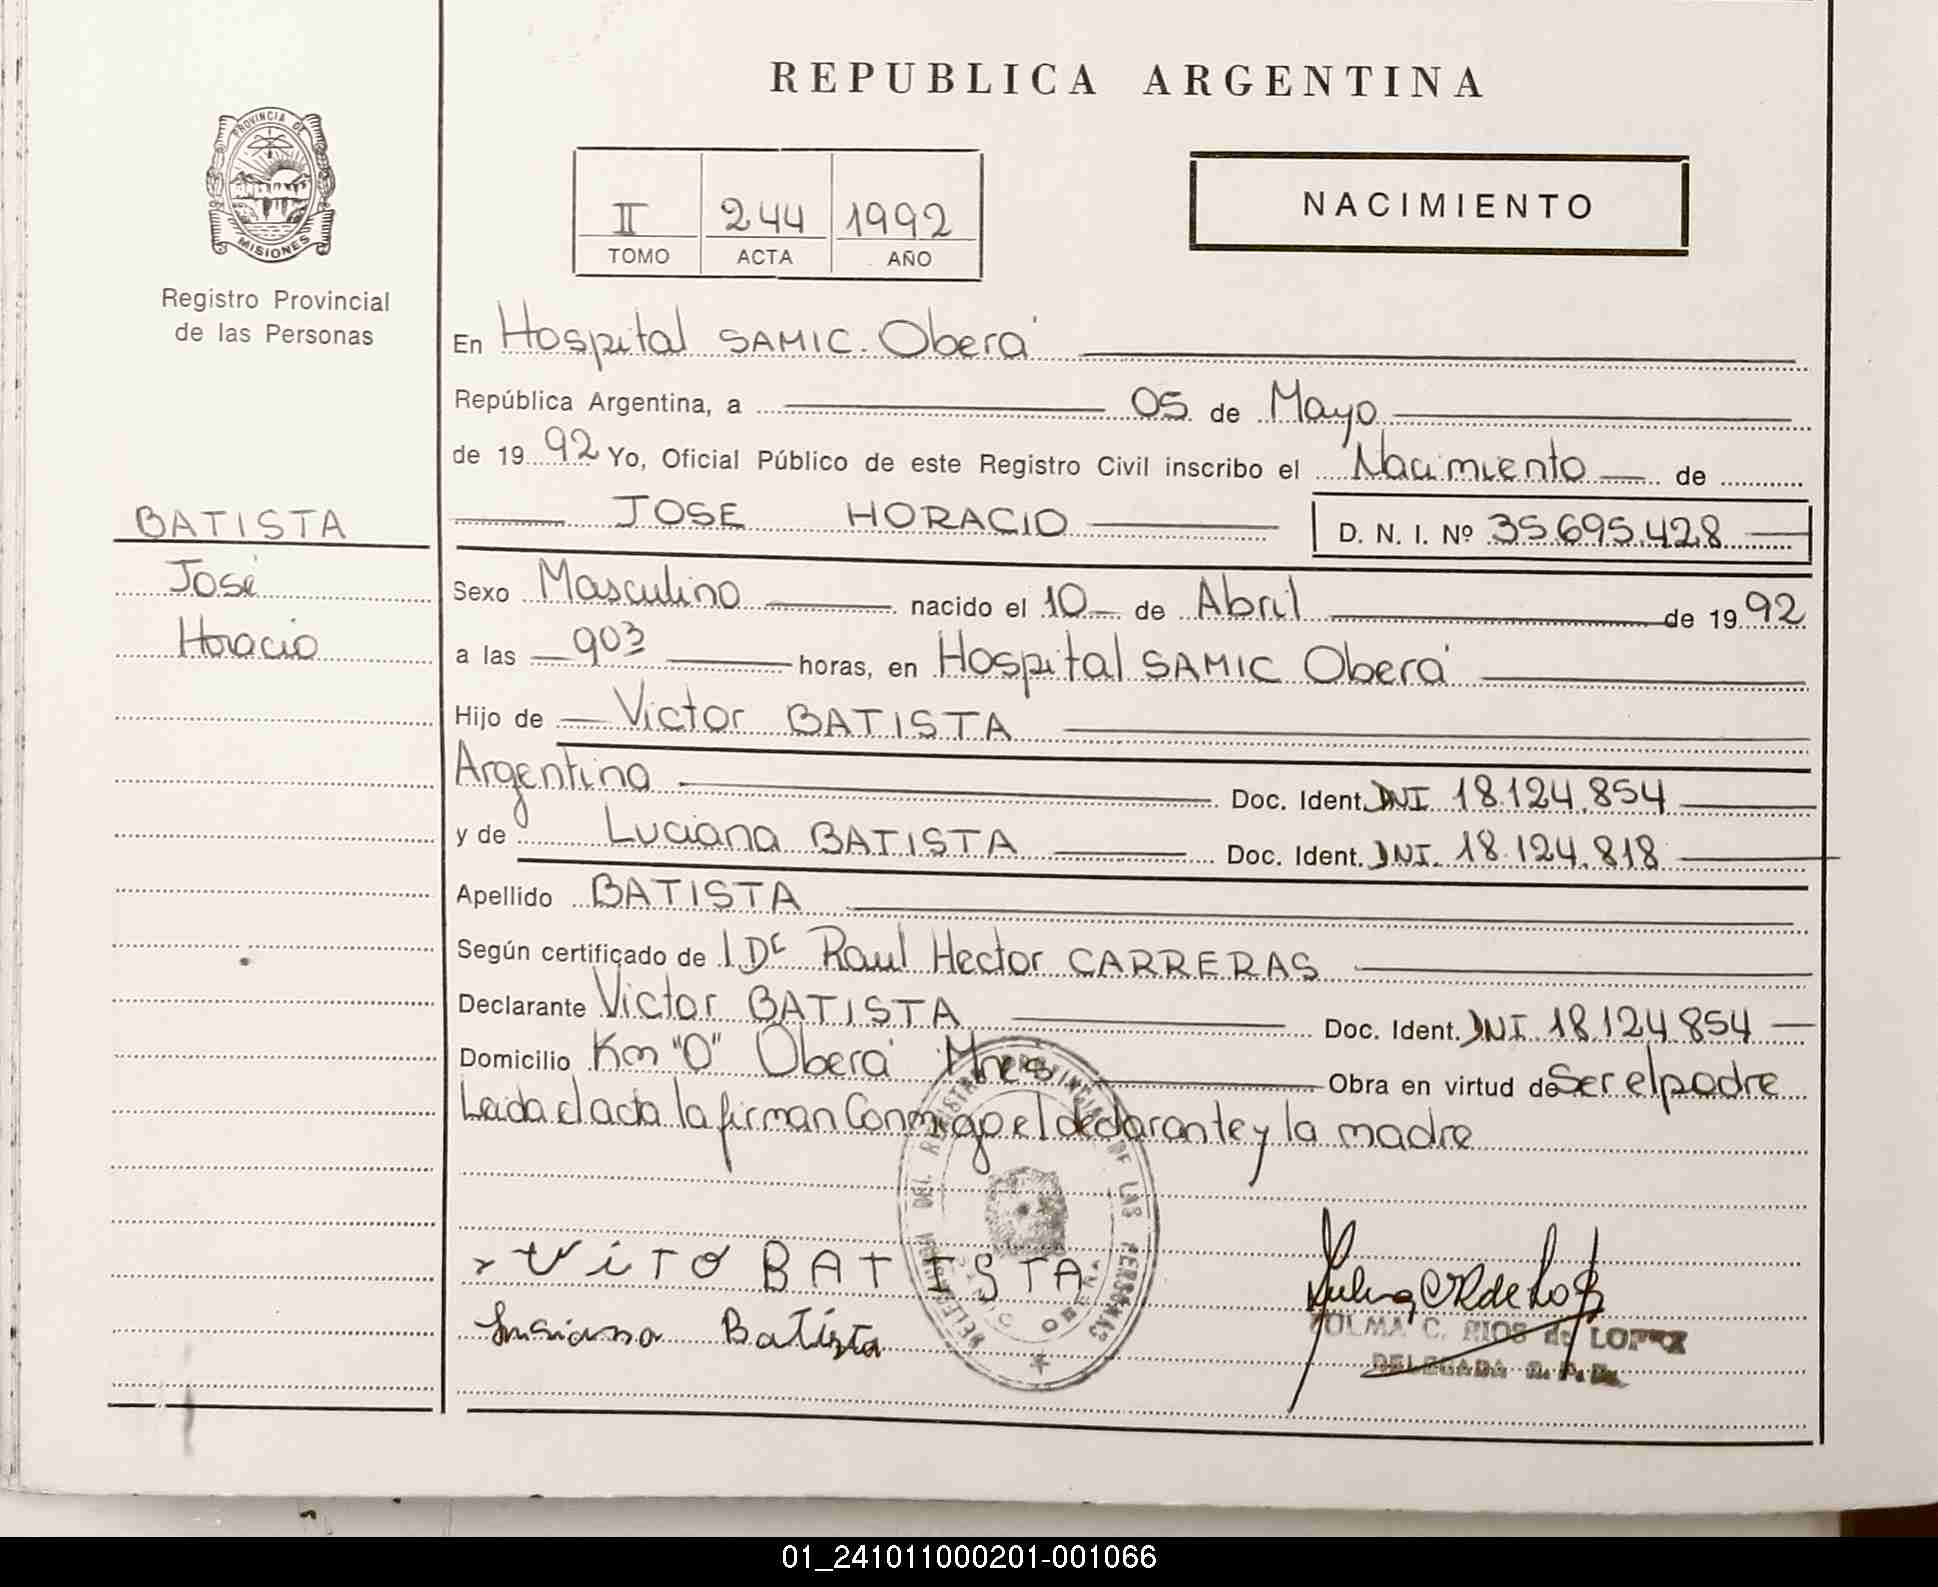 REPUBLICA ARGENTINA
PROVINCIA DE
MISIONES
Registro Provincial
de las Personas
II 244 1992
TOMO ACTA AÑO
NACIMIENTO
En Hospital SAMIC. Oberá
República Argentina, a 05 de Mayo
de 1992 Yo, Oficial Público de este Registro Civil inscribo el Nacimiento de
JOSE HORACIO D. N. I. Nº 35.695.428
BATISTA
José
Horacio
Sexo Masculino nacido el 10 de Abril de 1992
a las 903 horas, en Hospital SAMIC Oberá
Hijo de Victor BATISTA
Argentina Doc. Ident. DNI 18.124.854
y de Luciana BATISTA Doc. Ident. DNI. 18.124.818
Apellido BATISTA
Según certificado de l Dr Raul Hector CARRERAS
Declarante Victor BATISTA Doc. Ident. DNI 18.124.854
Domicilio Km "0" Oberá Mnes Obra en virtud de Ser el padre
Leida el acta la firman Conmigo el declarante y la madre
DELEGACION DEL REGISTRO PROVINCIAL DE LAS PERSONAS
SAMIC OBERA
VITO BATISTA
Lusiana Batista
ZULMA C. RIOS de LOPEZ
DELEGADA R. P. P.
01_241011000201-001066